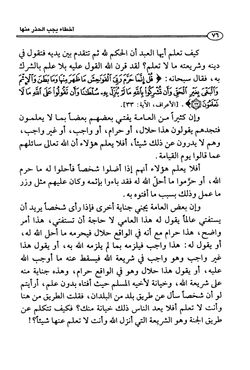 ٧٦
أخطاء يجب الحذر منها
كيف تعلم أيها العبد أن الحكم لله ثم تتقدم بين يديه فتقول في
دينه وشريعته ما لا تعلم؟ لقد قرن الله القول عليه بلا علم بالشرك
به، فقال سبحانه: ﴿قُلْ إِنَّمَا حَرَّمَ رَبِّيَ الْفَوَاحِشَ مَا ظَهَرَ مِنْهَا وَمَا بَطَنَ وَالْإِثْمَ
وَالْبَغْيَ بِغَيْرِ الْحَقِّ وَأَن تُشْرِكُوا بِاللَّهِ مَا لَمْ يُنَزِّلْ بِهِ سُلْطَانًا وَأَن تَقُولُوا عَلَى اللَّهِ مَا لَا
تَعْلَمُونَ﴾ [الأعراف، الآية: ٣٣].
وإن كثيراً من العامة يفتي بعضهم بعضاً بما لا يعلمون
فتجدهم يقولون هذا حلال، أو حرام، أو واجب، أو غير واجب،
وهم لا يدرون عن ذلك شيئاً، أفلا يعلم هؤلاء أن الله تعالى سائلهم
عما قالوا يوم القيامة.
أفلا يعلم هؤلاء أنهم إذا أضلوا شخصاً فأحلوا له ما حرم
الله، أو حرَّموا ما أحلَّ الله له فقد باءوا بإثمه وكان عليهم مثل وزر
ما عمل وذلك بسبب ما أفتوه به.
وإن بعض العامة يجني جناية أخرى فإذا رأى شخصاً يريد أن
يستفتي عالماً يقول له هذا العامي لا حاجة أن تستفتي، هذا أمر
واضح، هذا حرام مع أنه في الواقع حلال فيحرمه ما أحل الله له،
أو يقول له: هذا واجب فيلزمه بما لم يلزمه الله به، أو يقول هذا
غير واجب وهو واجب في شريعة الله فيسقط عنه ما أوجب الله
عليه، أو يقول هذا حلال وهو في الواقع حرام، وهذه جناية منه
على شريعة الله، وخيانة لأخيه المسلم حيث أفتاه بدون علم، أرأيتم
لو أن شخصاً سأل عن طريق بلد من البلدان، فقلت الطريق من هنا
وأنت لا تعلم أفلا يعد الناس ذلك خيانة منك؟ فكيف تتكلم عن
طريق الجنة وهو الشريعة التي أنزل الله وأنت لا تعلم عنها شيئاً؟!